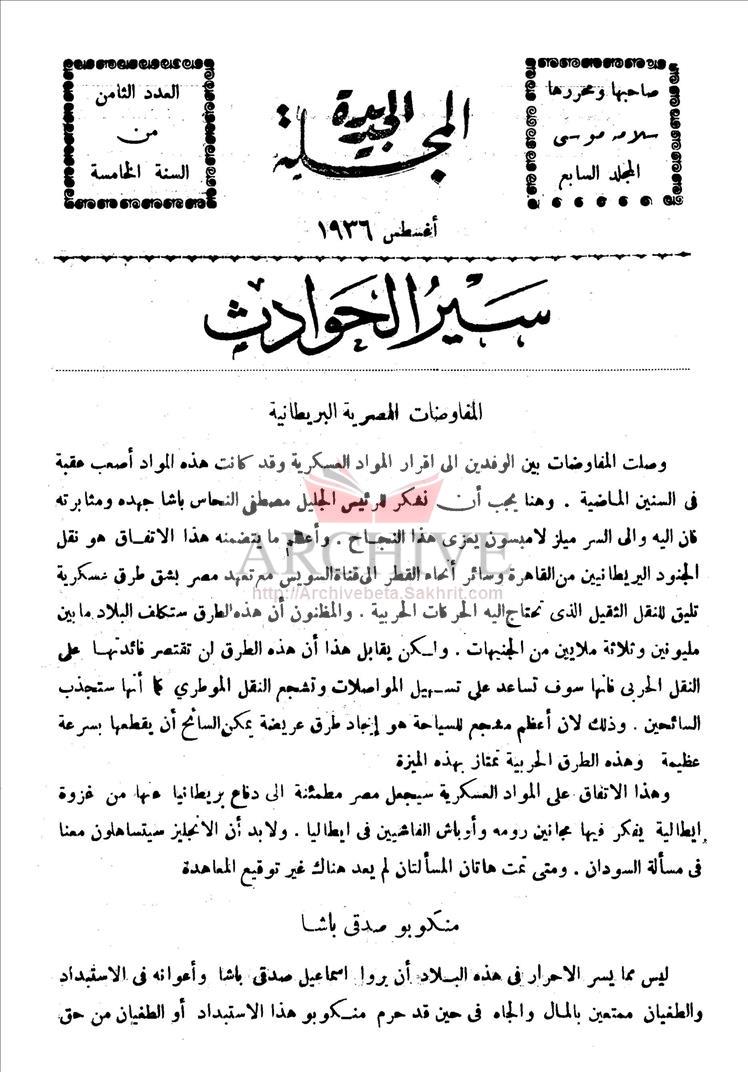 صاحبها ومحررها
سلامه موسى
المجلد السابع
المجلة الجديدة
العدد الثامن
من
السنة الخامسة
أغسطس ١٩٣٦
سَيْرُ الحَوادِث
المفاوضات المصرية البريطانية
وصلت المفاوضات بين الوفدين الى اقرار المواد العسكرية وقد كانت هذه المواد أصعب عقبة
فى السنين الماضية . وهنا يجب أن نشكر للرئيس الجليل مصطفى النحاس باشا جهده ومثابرته
فان اليه والى السر ميلز لامبسون يعزى هذا النجاح . وأعظم ما يتضمنه هذا الاتفاق هو نقل
الجنود البريطانيين من القاهرة وسائر أنحاء القطر الى قناة السويس مع تعهد مصر بشق طرق عسكرية
تليق للنقل الثقيل الذى تحتاج اليه الحركات الحربية . والمظنون أن هذه الطرق ستكلف البلاد ما بين
مليونين وثلاثة ملايين من الجنيهات . ولكن يقابل هذا أن هذه الطرق لن تقتصر فائدتها على
النقل الحربى فانها سوف تساعد على تسهيل المواصلات وتشجع النقل الموطري كما أنها ستجذب
السائحين . وذلك لان أعظم مشجع للسياحة هو إيجاد طرق عريضة يمكن السائح أن يقطعها بسرعة
عظيمة وهذه الطرق الحربية تمتاز بهذه الميزة
وهذا الاتفاق على المواد العسكرية سيجعل مصر مطمئنة الى دفاع بريطانيا عنها من غزوة
إيطالية يفكر فيها مجانين رومه وأوباش الفاشيين فى ايطاليا . ولا بد أن الانجليز سيتساهلون معنا
فى مسألة السودان . ومتى تمت هاتان المسألتان لم يعد هناك غير توقيع المعاهدة
منكوبو صدقى باشا
ليس مما يسر الاحرار فى هذه البلاد أن يروا اسماعيل صدقى باشا وأعوانه فى الاستبداد
والطغيان ممتعين بالمال والجاه فى حين قد حرم منكوبو هذا الاستبداد أو الطغيان من حق
ARCHIVE
http://Archivebeta.Sakhrit.com